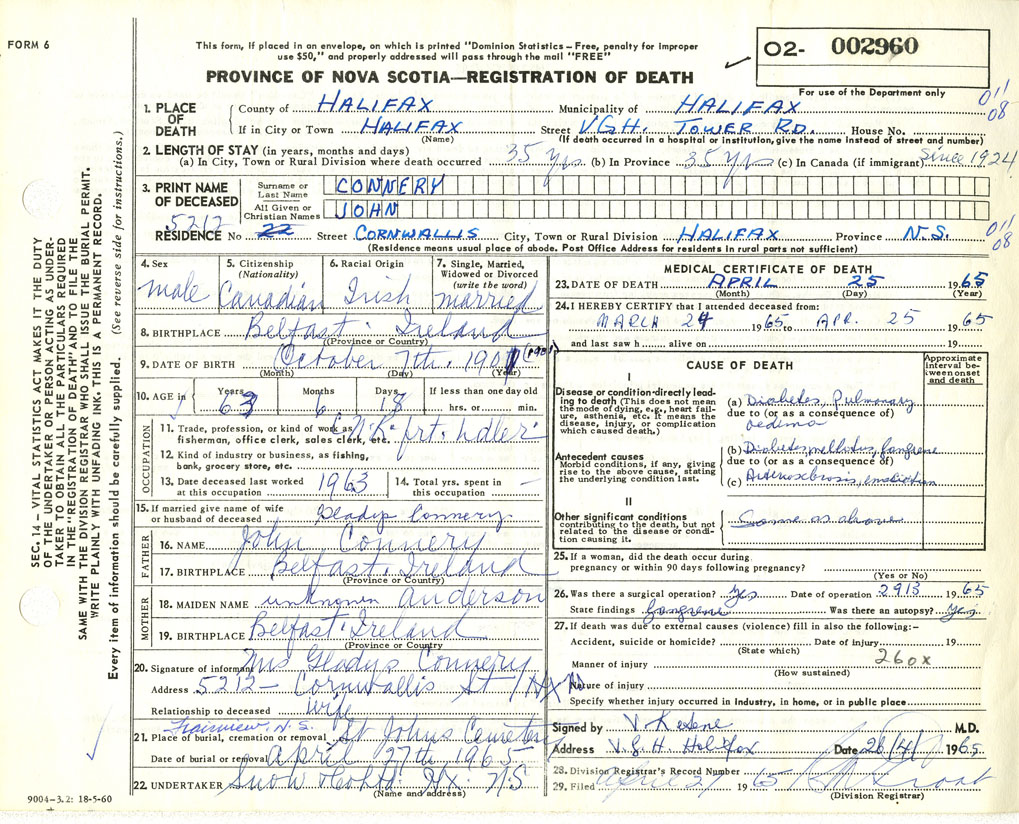 FORM 6
This form, if placed in an envelope, on which is printed "Dominion Statistics – Free, penalty for improper
use $50," and properly addressed will pass through the mail "FREE"
PROVINCE OF NOVA SCOTIA—REGISTRATION OF DEATH
O2- 002960
For use of the Department only
011
08
1. PLACE OF DEATH
County of HALIFAX Municipality of HALIFAX
If in City or Town HALIFAX Street V.G.H. TOWER RD. House No.
(Name) (If death occurred in a hospital or institution, give the name instead of street and number)
2. LENGTH OF STAY (in years, months and days)
(a) In City, Town or Rural Division where death occurred 35 yrs. (b) In Province 35 yrs (c) In Canada (if immigrant) since 1924
3. PRINT NAME OF DECEASED
Surname or Last Name CONNERY
All Given or Christian Names JOHN
5212
RESIDENCE No 22 Street CORNWALLIS City, Town or Rural Division HALIFAX Province N.S.
011
08
(Residence means usual place of abode. Post Office Address for residents in rural parts not sufficient)
4. Sex male
5. Citizenship (Nationality) Canadian
6. Racial Origin Irish
7. Single, Married, Widowed or Divorced (write the word) married
8. BIRTHPLACE Belfast. Ireland
(Province or Country)
9. DATE OF BIRTH October 7th. 1901 (1901)
(Month) (Day) (Year)
10. AGE in Years 63 Months 6 Days 18 If less than one day old hrs. or min.
OCCUPATION
11. Trade, profession, or kind of work as fisherman, office clerk, sales clerk, etc.
12. Kind of industry or business, as fishing, bank, grocery store, etc.
13. Date deceased last worked at this occupation 1963
14. Total yrs. spent in this occupation —
15. If married give name of wife or husband of deceased Gladys Connery
FATHER
16. NAME John Connery
17. BIRTHPLACE Belfast. Ireland
(Province or Country)
MOTHER
18. MAIDEN NAME unknown Anderson
19. BIRTHPLACE Belfast. Ireland
(Province or Country)
20. Signature of informant Mrs Gladys Connery
Address 5212 — Cornwallis St Hx
Relationship to deceased wife
Fairview, N.S.
21. Place of burial, cremation or removal St Johns Cemetery
Date of burial or removal April 27th 1965
22. UNDERTAKER Snow Hx. N.S
(Name and address)
MEDICAL CERTIFICATE OF DEATH
23. DATE OF DEATH APRIL 25 1965
(Month) (Day) (Year)
24. I HEREBY CERTIFY that I attended deceased from:
MARCH 24 1965 to APR. 25 1965
and last saw h alive on 19
CAUSE OF DEATH
Approximate interval between onset and death
I
Disease or condition directly leading to death (This does not mean the mode of dying, e.g., heart failure, asthenia, etc. It means the disease, injury, or complication which caused death.)
(a) Diabetes, Pulmonary
due to (or as a consequence of)
oedema
Antecedent causes
Morbid conditions, if any, giving rise to the above cause, stating the underlying condition last.
(b) Diabetes mellitus, gangrene
due to (or as a consequence of)
(c) Arteriosclerosis,
II
Other significant conditions
contributing to the death, but not related to the disease or condition causing it.
Same as above
25. If a woman, did the death occur during
pregnancy or within 90 days following pregnancy?
(Yes or No)
26. Was there a surgical operation? Yes Date of operation 29/3 1965
State findings Gangrene Was there an autopsy? Yes.
27. If death was due to external causes (violence) fill in also the following:—
Accident, suicide or homicide? Date of injury 19
(State which)
260x
Manner of injury
(How sustained)
Nature of injury
Specify whether injury occurred in Industry, in home, or in public place
Signed by M.D.
Address V.G.H. Halifax Date 26/4/ 1965
28. Division Registrar's Record Number
29. Filed 1965
(Division Registrar)
SEC. 14 – VITAL STATISTICS ACT MAKES IT THE DUTY
OF THE UNDERTAKER OR PERSON ACTING AS UNDER-
TAKER TO OBTAIN ALL THE PARTICULARS REQUIRED
IN THE "REGISTRATION OF DEATH" AND TO FILE THE
SAME WITH THE DIVISION REGISTRAR WHO SHALL ISSUE THE BURIAL PERMIT.
WRITE PLAINLY WITH UNFADING INK. THIS IS A PERMANENT RECORD.
Every item of information should be carefully supplied. (See reverse side for instructions.)
9004-3.2: 18-5-60